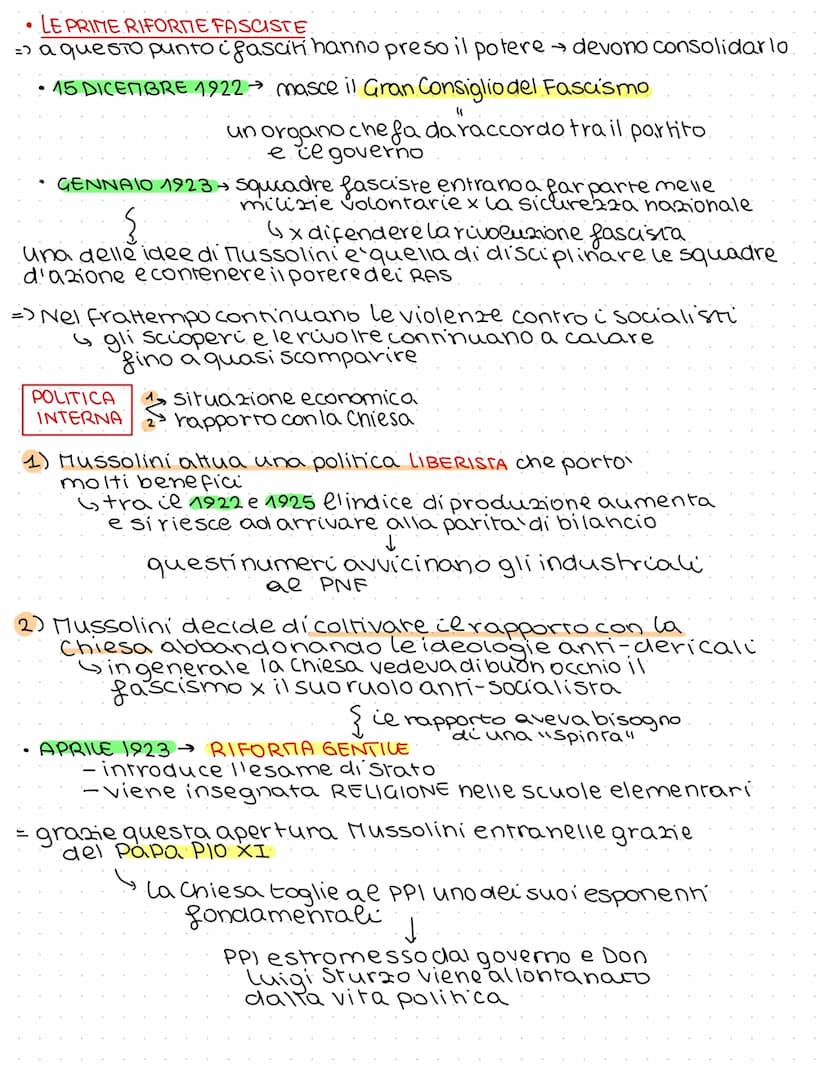 • LE PRIME RIFORME FASCISTE
=> a questo punto i fascisti hanno preso il potere → devono consolidarlo
• 15 DICEMBRE 1922 → nasce il Gran Consiglio del Fascismo
"
un organo che fa da raccordo tra il partito
e il governo
• GENNAIO 1923 → squadre fasciste entrano a far parte nelle
milizie volontarie x la sicurezza nazionale
↳ x difendere la rivoluzione fascista
una delle idee di Mussolini e' quella di disciplinare le squadre
d'azione e contenere il potere dei RAS
=> Nel frattempo continuano le violenze contro i socialisti
↳ gli scioperi e le rivolte continuano a calare
fino a quasi scomparire
POLITICA INTERNA
1→ situazione economica
2→ rapporto con la Chiesa
1) Mussolini attua una politica LIBERISTA che porto'
molti benefici
↳ tra il 1922 e 1925 l'indice di produzione aumenta
e si riesce ad arrivare alla parita' di bilancio
↓
questi numeri avvicinano gli industriali
al PNF
2) Mussolini decide di coltivare il rapporto con la
Chiesa abbandonando le ideologie anti-clericali
↳ in generale la Chiesa vedeva di buon occhio il
fascismo x il suo ruolo anti-socialista
il rapporto aveva bisogno
di una "spinta"
• APRILE 1923 → RIFORMA GENTILE
- introduce l'esame di Stato
- viene insegnata RELIGIONE nelle scuole elementari
= grazie questa apertura Mussolini entra nelle grazie
del PAPA PIO XI
↳ La Chiesa toglie al PPI uno dei suoi esponenti
fondamentali
↓
PPI estromesso dal governo e Don
Luigi Sturzo viene allontanato
dalla vita politica